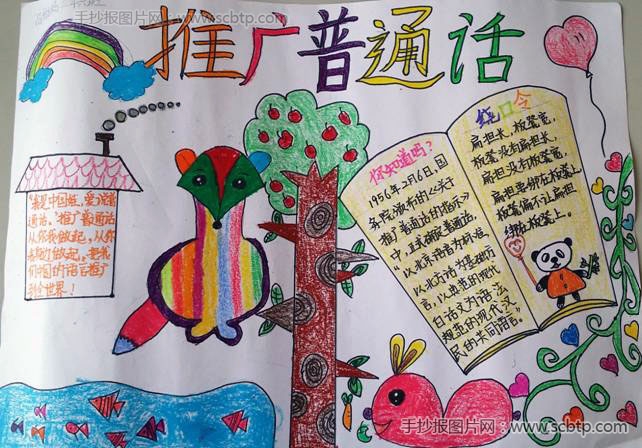 手抄报图片网-www.scbtp.com
推广普通话
"我是中国娃,爱说普
通话。"推广普通话
从你我做起,从你
身边做起,把我
们中国的语言推广
到全世界!
你知道吗?
1956年2月6日,国
务院颁布的《关于
推广普通话的指示》
中,正式确定普通话
以北京语音为标准
以北方话为基础方
言,以典范的现代
白话文为语法
规范的现代汉
民的共同语言。
绕口令
扁担长,板凳宽,
板凳没有扁担长,
扁担没有板凳宽,
扁担要绑在板凳上,
板凳偏不让扁担
绑在板凳上。
手抄报图片网:www.scbtp.com